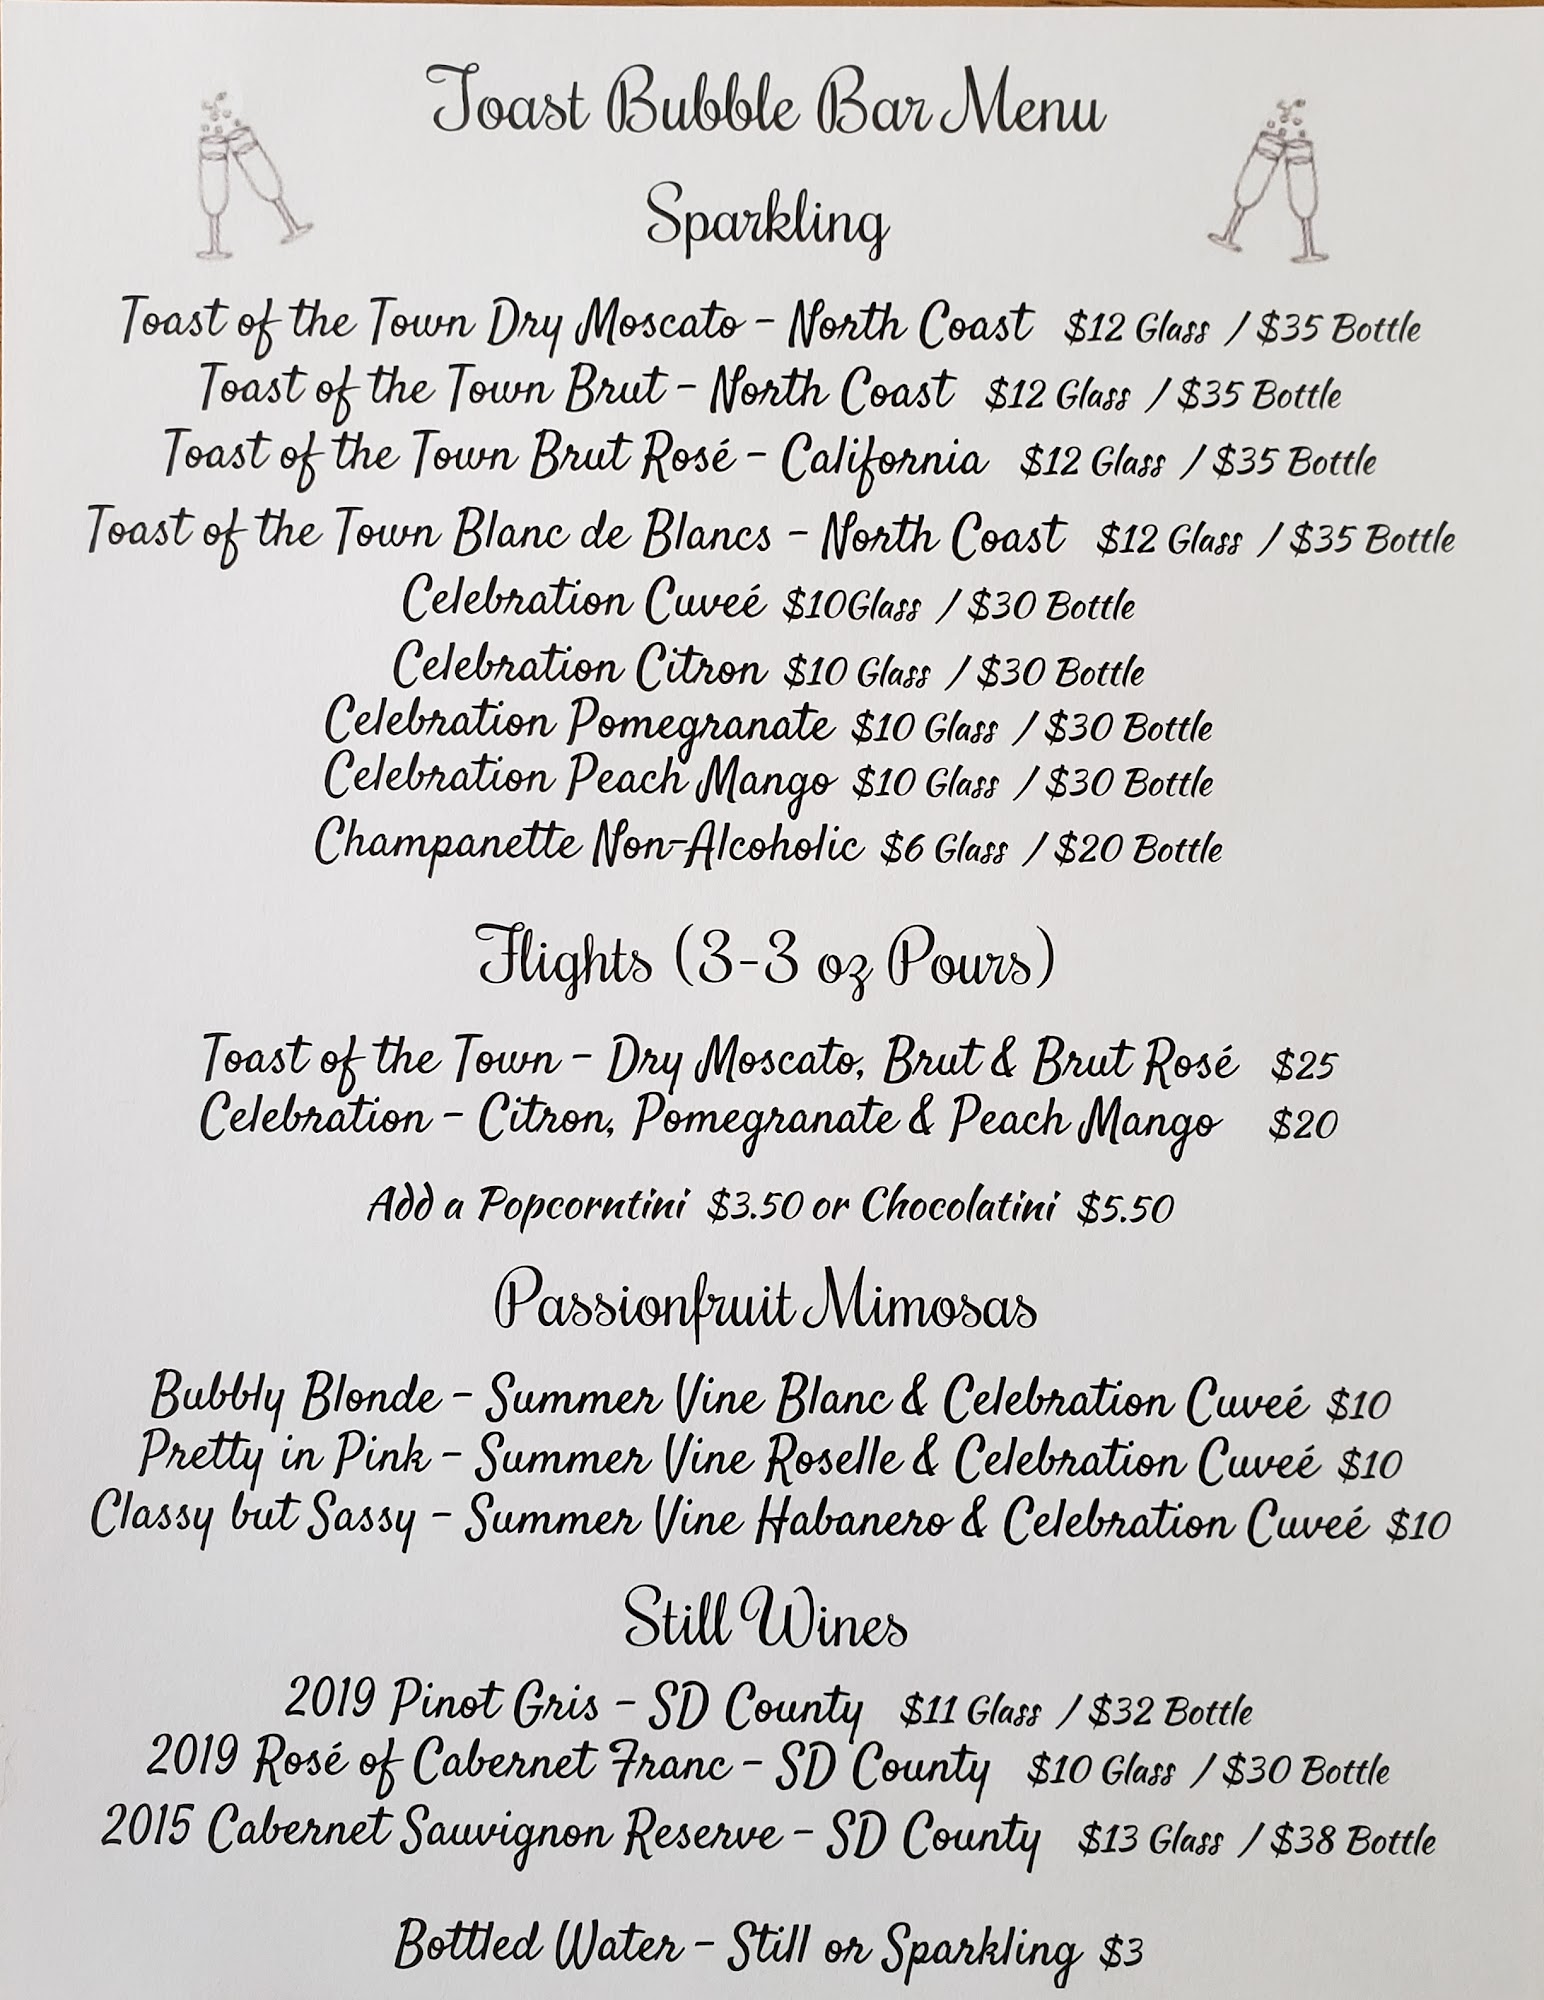 Toast Bubble Bar Menu
Sparkling
Toast of the Town Dry Moscato - North Coast $12 Glass / $35 Bottle
Toast of the Town Brut - North Coast $12 Glass / $35 Bottle
Toast of the Town Brut Rosé - California $12 Glass / $35 Bottle
Toast of the Town Blanc de Blancs - North Coast $12 Glass / $35 Bottle
Celebration Cuveé $10Glass / $30 Bottle
Celebration Citron $10 Glass / $30 Bottle
Celebration Pomegranate $10 Glass / $30 Bottle
Celebration Peach Mango $10 Glass / $30 Bottle
Champanette Non-Alcoholic $6 Glass / $20 Bottle
Flights (3-3 oz Pours)
Toast of the Town - Dry Moscato, Brut & Brut Rosé $25
Celebration - Citron, Pomegranate & Peach Mango $20
Add a Popcorntini $3.50 or Chocolatini $5.50
Passionfruit Mimosas
Bubbly Blonde - Summer Vine Blanc & Celebration Cuveé $10
Pretty in Pink - Summer Vine Roselle & Celebration Cuveé $10
Classy but Sassy - Summer Vine Habanero & Celebration Cuveé $10
Still Wines
2019 Pinot Gris - SD County $11 Glass / $32 Bottle
2019 Rosé of Cabernet Franc - SD County $10 Glass / $30 Bottle
2015 Cabernet Sauvignon Reserve - SD County $13 Glass / $38 Bottle
Bottled Water - Still or Sparkling $3